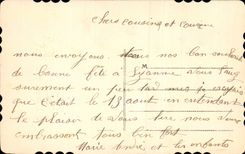 chers cousins et cousine
nous envoyons nos bons souhaits
de bonne fête à Myanne nous l'aug
surement un peu tard
que c'était le 15 août en entendant
le plaisir de vous lire nous vous
embrassons tous bien fort
Marie André et les enfants